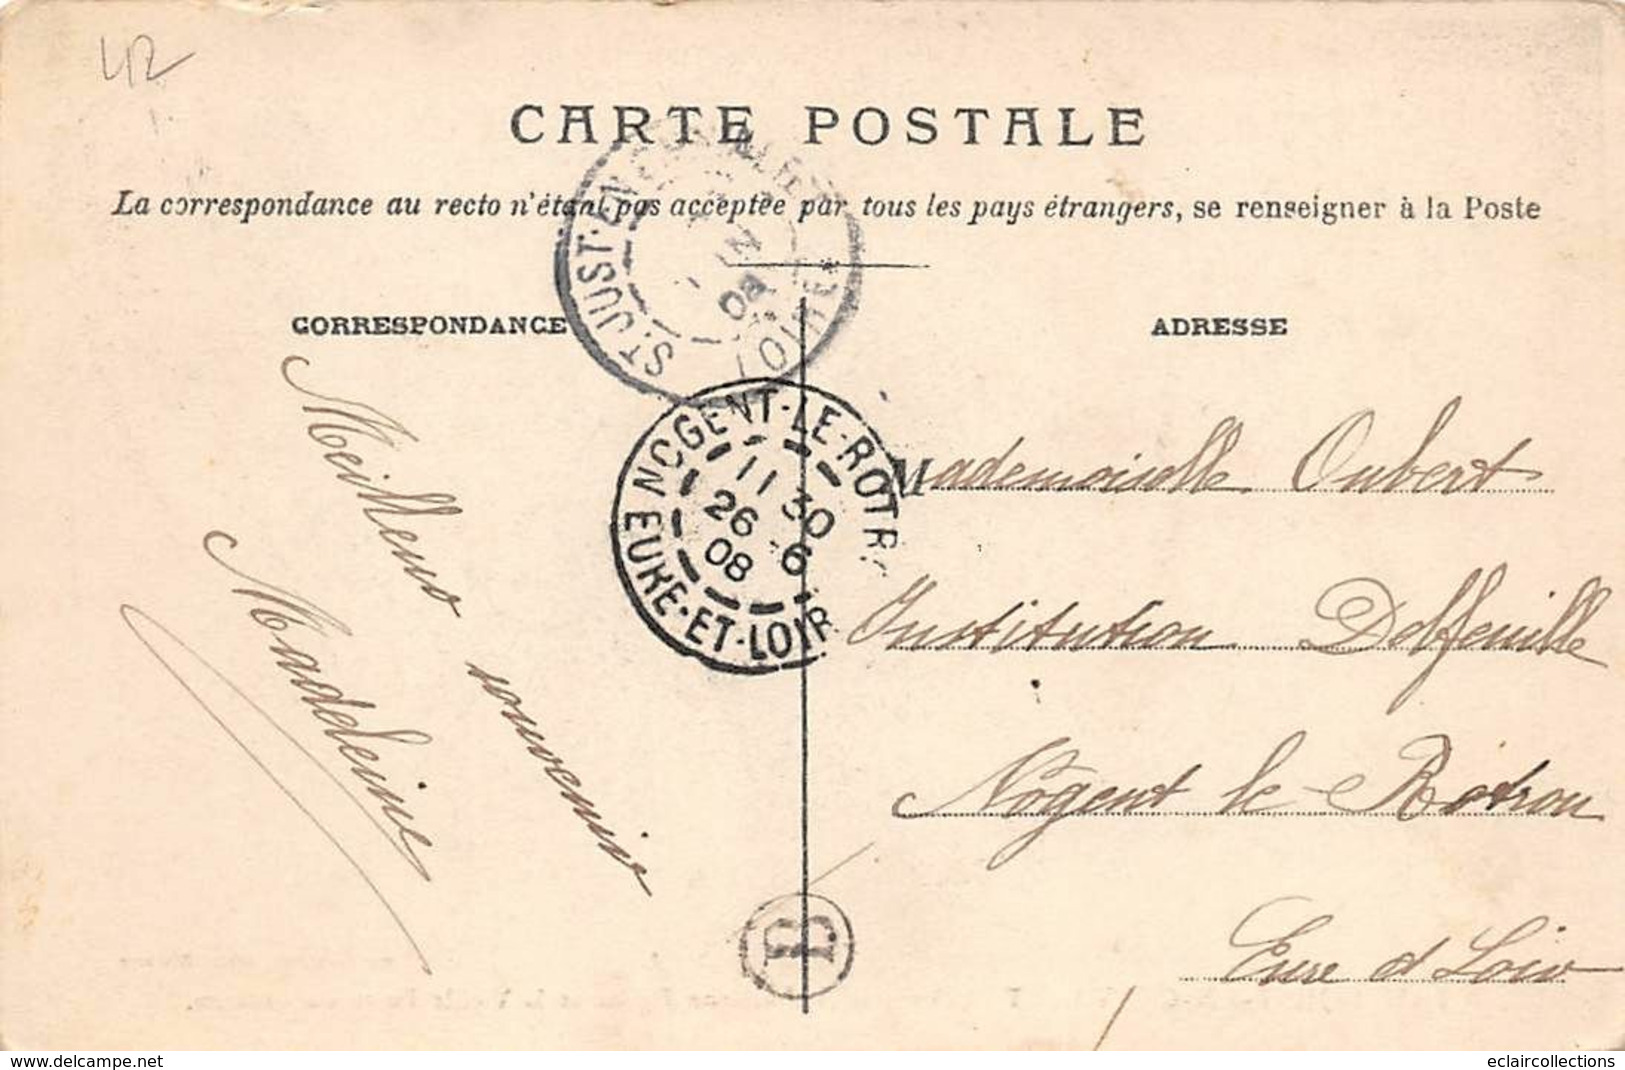 42
CARTE POSTALE
La correspondance au recto n'étant pas acceptée par tous les pays étrangers, se renseigner à la Poste
CORRESPONDANCE
Meilleurs souvenirs
Madeleine
ST-JUST-EN-CHEVALET
08
LOIRE
NOGENT-LE-ROTR
11 30
26 6
08
EURE-ET-LOIR
B
ADRESSE
Mademoiselle Oubert
Institution Delfeuille
Nogent le Rotrou
Eure et Loir
www.delcampe.net
eclaircollections